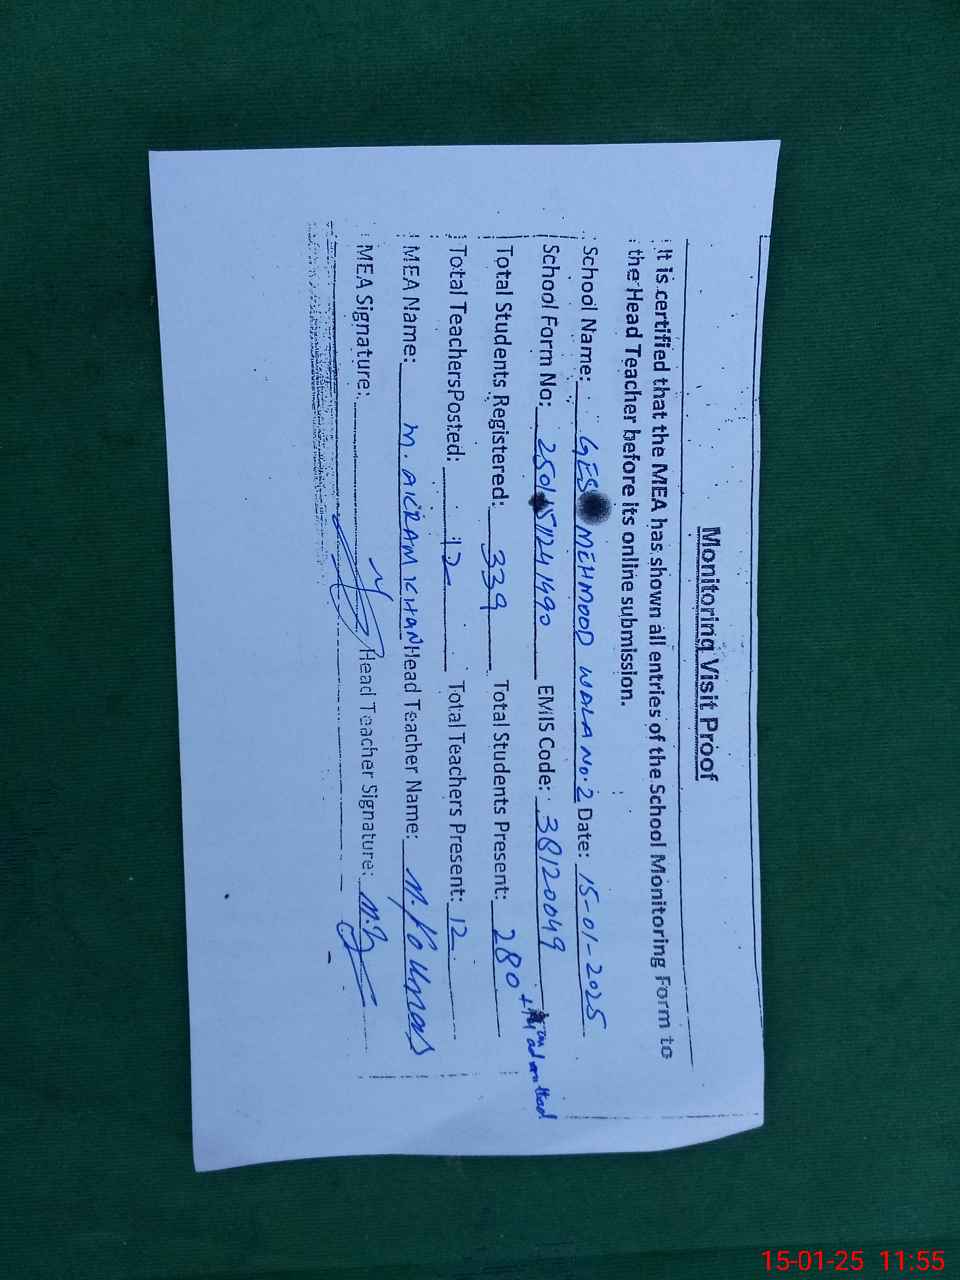 Monitoring Visit Proof
It is certified that the MEA has shown all entries of the School Monitoring Form to
the Head Teacher before its online submission.
School Name: GES MEHMOOD WALA No. 2 Date: 15-01-2025
School Form No: EMIS Code: 38120049
Total Students Registered: 339 Total Students Present: 280
Total TeachersPosted: 12 Total Teachers Present: 12
MEA Name: M. AKRAM KHAN Head Teacher Name: M.
MEA Signature: Head Teacher Signature:
15-01-25 11:55